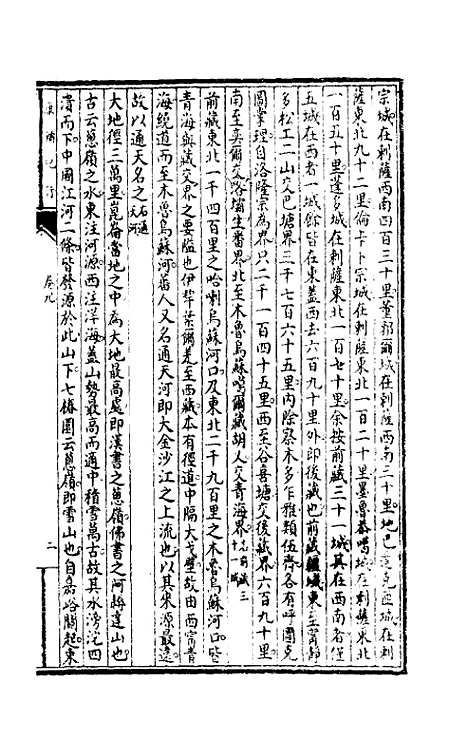 宗城在剌薩西南四百三十里董郭爾城在剌薩西南二十里地巴達克匝城在剌
薩東北九十二里倫卡卜宗城在剌薩東北一百二十里墨魯恭噶城在剌薩東北
一百五十里蓬多城在剌薩東北一百七十里余按前藏三十一城其在西南者僅
五城在西者一城餘皆在東蓋西去六百九十里外即後藏也前藏疆域東至甯靜
多松工二山交巴塘界三千七百六十五里內除察木多乍雅類伍齊各有呼圖克
圖掌理自洛隆宗為界只二千一百四十五里西至谷喜塘交後藏界六百九十里
南至奕爾交珞瑜生番界北至木魯烏蘇噶爾藏胡人交青海界
前藏東北一千四百里之哈喇烏蘇河口及東北二千九百里之木魯烏蘇河口皆
青海與藏交界之要隘也伊犁葉爾羌至西藏本有徑道中隔大戈壁故由西甯青
海繞道而至木魯烏蘇河番人又名通天河即大金沙江之上流也以其來源最遠
故以通天名之
大地徑三萬里崑崙當地之中為大地最高處即漢書之蔥嶺佛書之阿耨達山也
古云蔥嶺之水東注河源西注洋海蓋山勢最高而適中積雪萬古故其水滂沱四
潰而下中國江河二條皆發源於此山下七椿園云蔥嶺即雪山也自嘉峪關起東
卷九
二